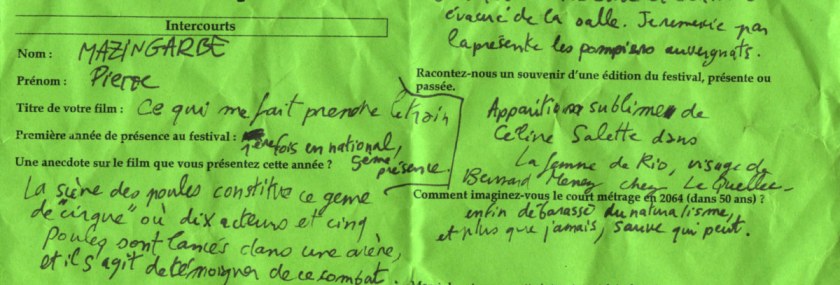 Intercourts
Nom : MAZINGARBE
Prénom : Pierre
Titre de votre film : Ce qui me fait prendre le train
Première année de présence au festival : 1ère fois en national,
5eme présence.
Une anecdote sur le film que vous présentez cette année ?
La scène des poules constitue ce genre
de "cirque" où dix acteurs et cinq
poules sont lancés dans une arène,
et il s'agit de témoigner de ce combat.
évacué de la salle. Je remercie par
la présente les pompiers auvergnats.
Racontez-nous un souvenir d'une édition du festival, présente ou
passée.
Apparition sublime de
Céline Salette dans
La femme de Rio, visage de
Bernard Menez chez Le Quellec
Comment imaginez-vous le court métrage en 2064 (dans 50 ans) ?
enfin débarassé du naturalisme,
et plus que jamais, sauve qui peut.